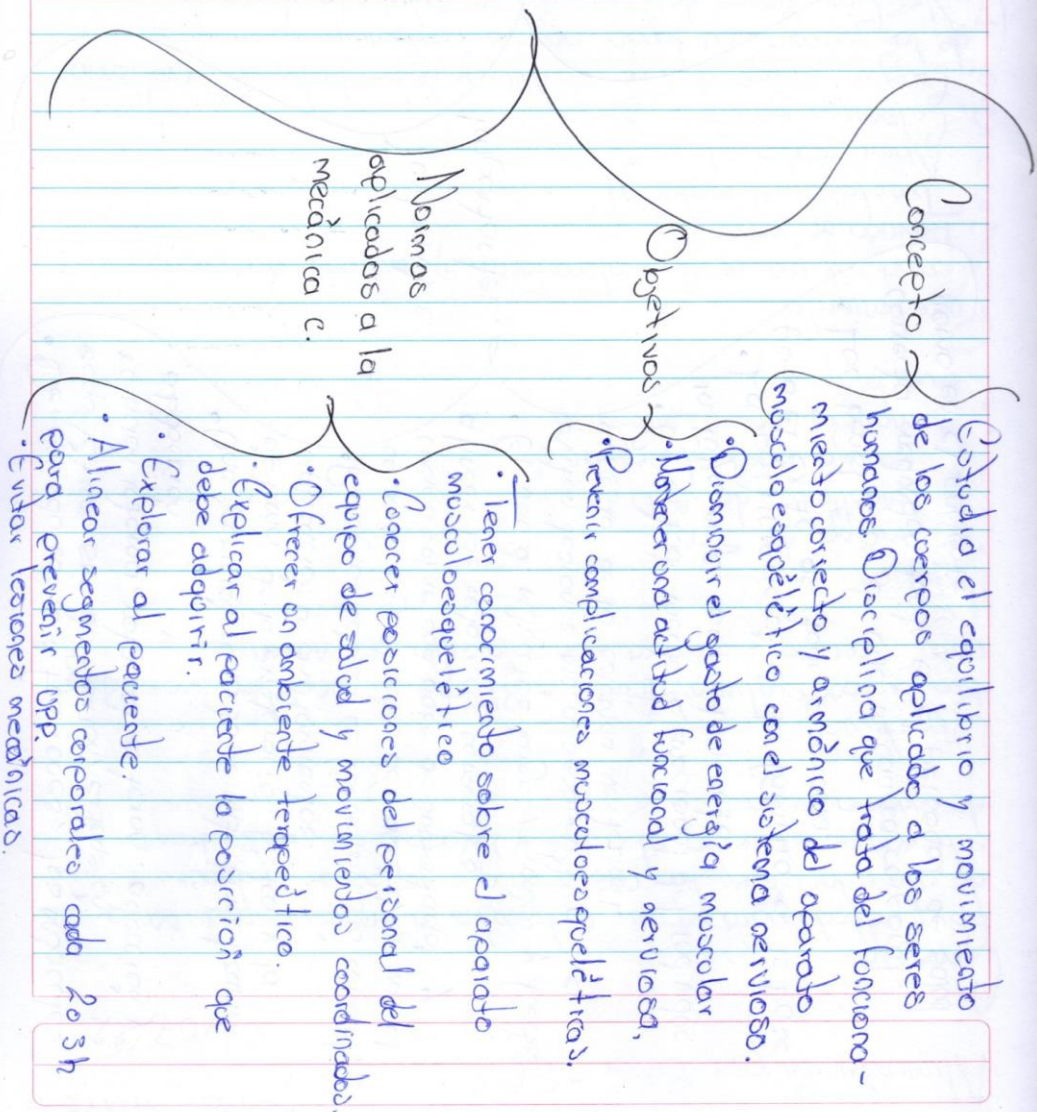 Concepto
Estudia el equilibrio y movimiento
de los cuerpos aplicado a los seres
humanos. Disciplina que trata del funciona-
miento correcto y armónico del aparato
musculoesquelético con el sistema nervioso.
Objetivos
• Disminuir el gasto de energía muscular
• Mantener una actitud funcional y nerviosa,
• Prevenir complicaciones musculoesqueléticas.
Normas
aplicadas a la
mecánica c.
• Tener conocimiento sobre el aparato
musculoesquelético
• Conocer posiciones del personal del
equipo de salud y movimientos coordinados.
• Ofrecer un ambiente terapeútico.
• Explicar al paciente la posición que
debe adquirir.
• Explorar al paciente.
• Alinear segmentos corporales cada 2 o 3 h
para prevenir UPP.
• Evitar lesiones mecánicas.